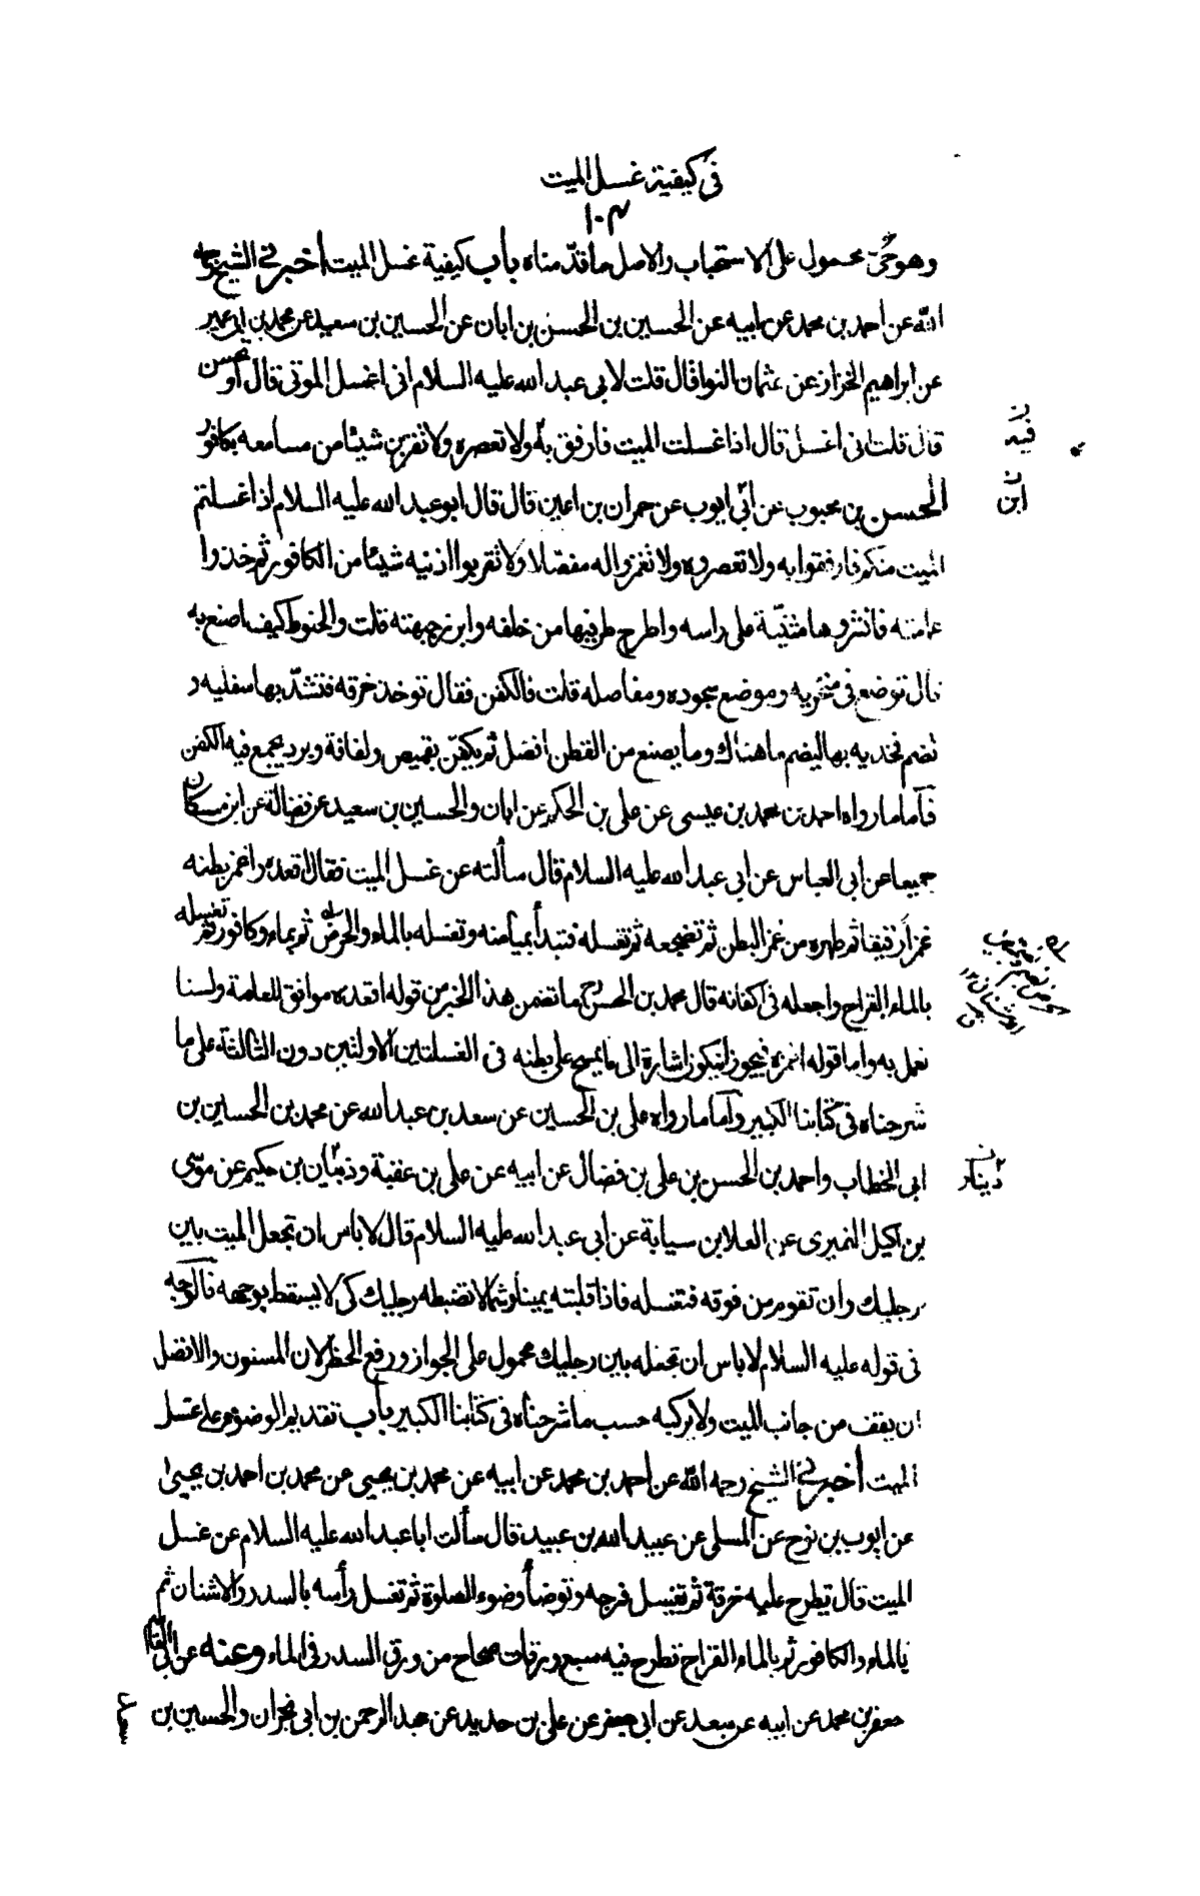 في كيفية غسل الميت
١٠٣
وهو محمول على الاستحباب والاصل ما قدّمناه باب كيفية غسل الميت أخبرني الشيخ رحمه
الله عن احمد بن محمد عن ابيه عن الحسين بن الحسن بن ابان عن الحسين بن سعيد عن محمد بن ابي عمير
عن ابراهيم الخزاز عن عثمان النوا قال قلت لابي عبد الله عليه السلام اني اغسل الموتى قال او تحسن
قال قلت اني اغسل قال اذا غسلت الميت فارفق به ولا تعصره ولا تقربن شيئا من مسامعه بكافور
فيه
الحسن بن محبوب عن ابي ايوب عن حمران بن اعين قال قال ابو عبد الله عليه السلام اذا غسلتم
ابن
الميت منكم فارفقوا به ولا تعصروه ولا تغمزوا له مفصلا ولا تقربوا اذنيه شيئا من الكافور ثم خذوا
عامته فانشروها مثنيّة على راسه واطرح طرفيها من خلفه وابرز جبهته قلت والحنوط كيف اصنع به
قال توضع في منخريه وموضع سجوده ومفاصله قلت فالكفن فقال توخذ خرقه فتشدّ بها سفليه و
تضم فخذيه بها ليضم ما هناك وما يصنع من القطن افضل ثم يكفّن بقميص ولفافة وبرد يجمع فيه الكفن
فأما ما رواه احمد بن محمد بن عيسى عن علي بن الحكم عن ابان والحسين بن سعيد عن فضالة عن ابن مسكان
جميعا عن ابي العباس عن ابي عبد الله عليه السلام قال سألته عن غسل الميت فقال اقعده واغمز بطنه
غمزا رفيقا ثم طهره من غمز البطن ثم تضجعه ثم تغسله فتبدأ بميامنه وتغسله بالماء والحرض ثم بماء وكافور ثم تغسله
بالماء القراح واجعله في اكفانه قال محمد بن الحسن رح ما تضمن هذا الخبر من قوله اقعده موافق للعامة ولسنا
نعمل به واما قوله اغمزه فيجوز ان يكون اشارة الى ما يمسح على بطنه في الغسلتين الاولتين دون الثالثة على ما
شرحناه في كتابنا الكبير وأما ما رواه علي بن الحسين عن سعد بن عبد الله عن محمد بن الحسين بن
ابي الخطاب واحمد بن الحسن بن علي بن فضال عن ابيه عن علي بن عقبة وذبيان بن حكيم عن موسى
دينار
بن اكيل النميري عن العلا بن سيابة عن ابي عبد الله عليه السلام قال لا باس ان تجعل الميت بين
رجليك وان تقوم من فوقه فتغسله فاذا قلبته يمينا وشمالا تضبطه رجليك كي لا يسقط بوجهه فالوجه
في قوله عليه السلام لا باس ان تجعله بين رجليك محمول على الجواز ورفع الحظر لان المسنون والافضل
ان يقف من جانب الميت ولا يركبه حسب ما شرحناه في كتابنا الكبير باب تقديم الوضوء على غسل
الميت أخبرني الشيخ رحمه الله عن احمد بن محمد عن ابيه عن محمد بن يحيى عن محمد بن احمد بن يحيى
عن ايوب بن نوح عن المسلي عن عبيد الله بن عبيد قال سألت ابا عبد الله عليه السلام عن غسل
الميت قال تطرح عليه خرقة ثم تغسل فرجه وتوضأ وضوء الصلوة ثم تغسل رأسه بالسدر والاشنان ثم
بالماء والكافور ثم بالماء القراح تطرح فيه سبع ورقات صحاح من ورق السدر في الماء وعنه عن ابي القا
جعفر بن محمد عن ابيه عن سعد عن ابي جعفر عن علي بن حديد عن عبد الرحمن بن ابي نجران والحسين بن